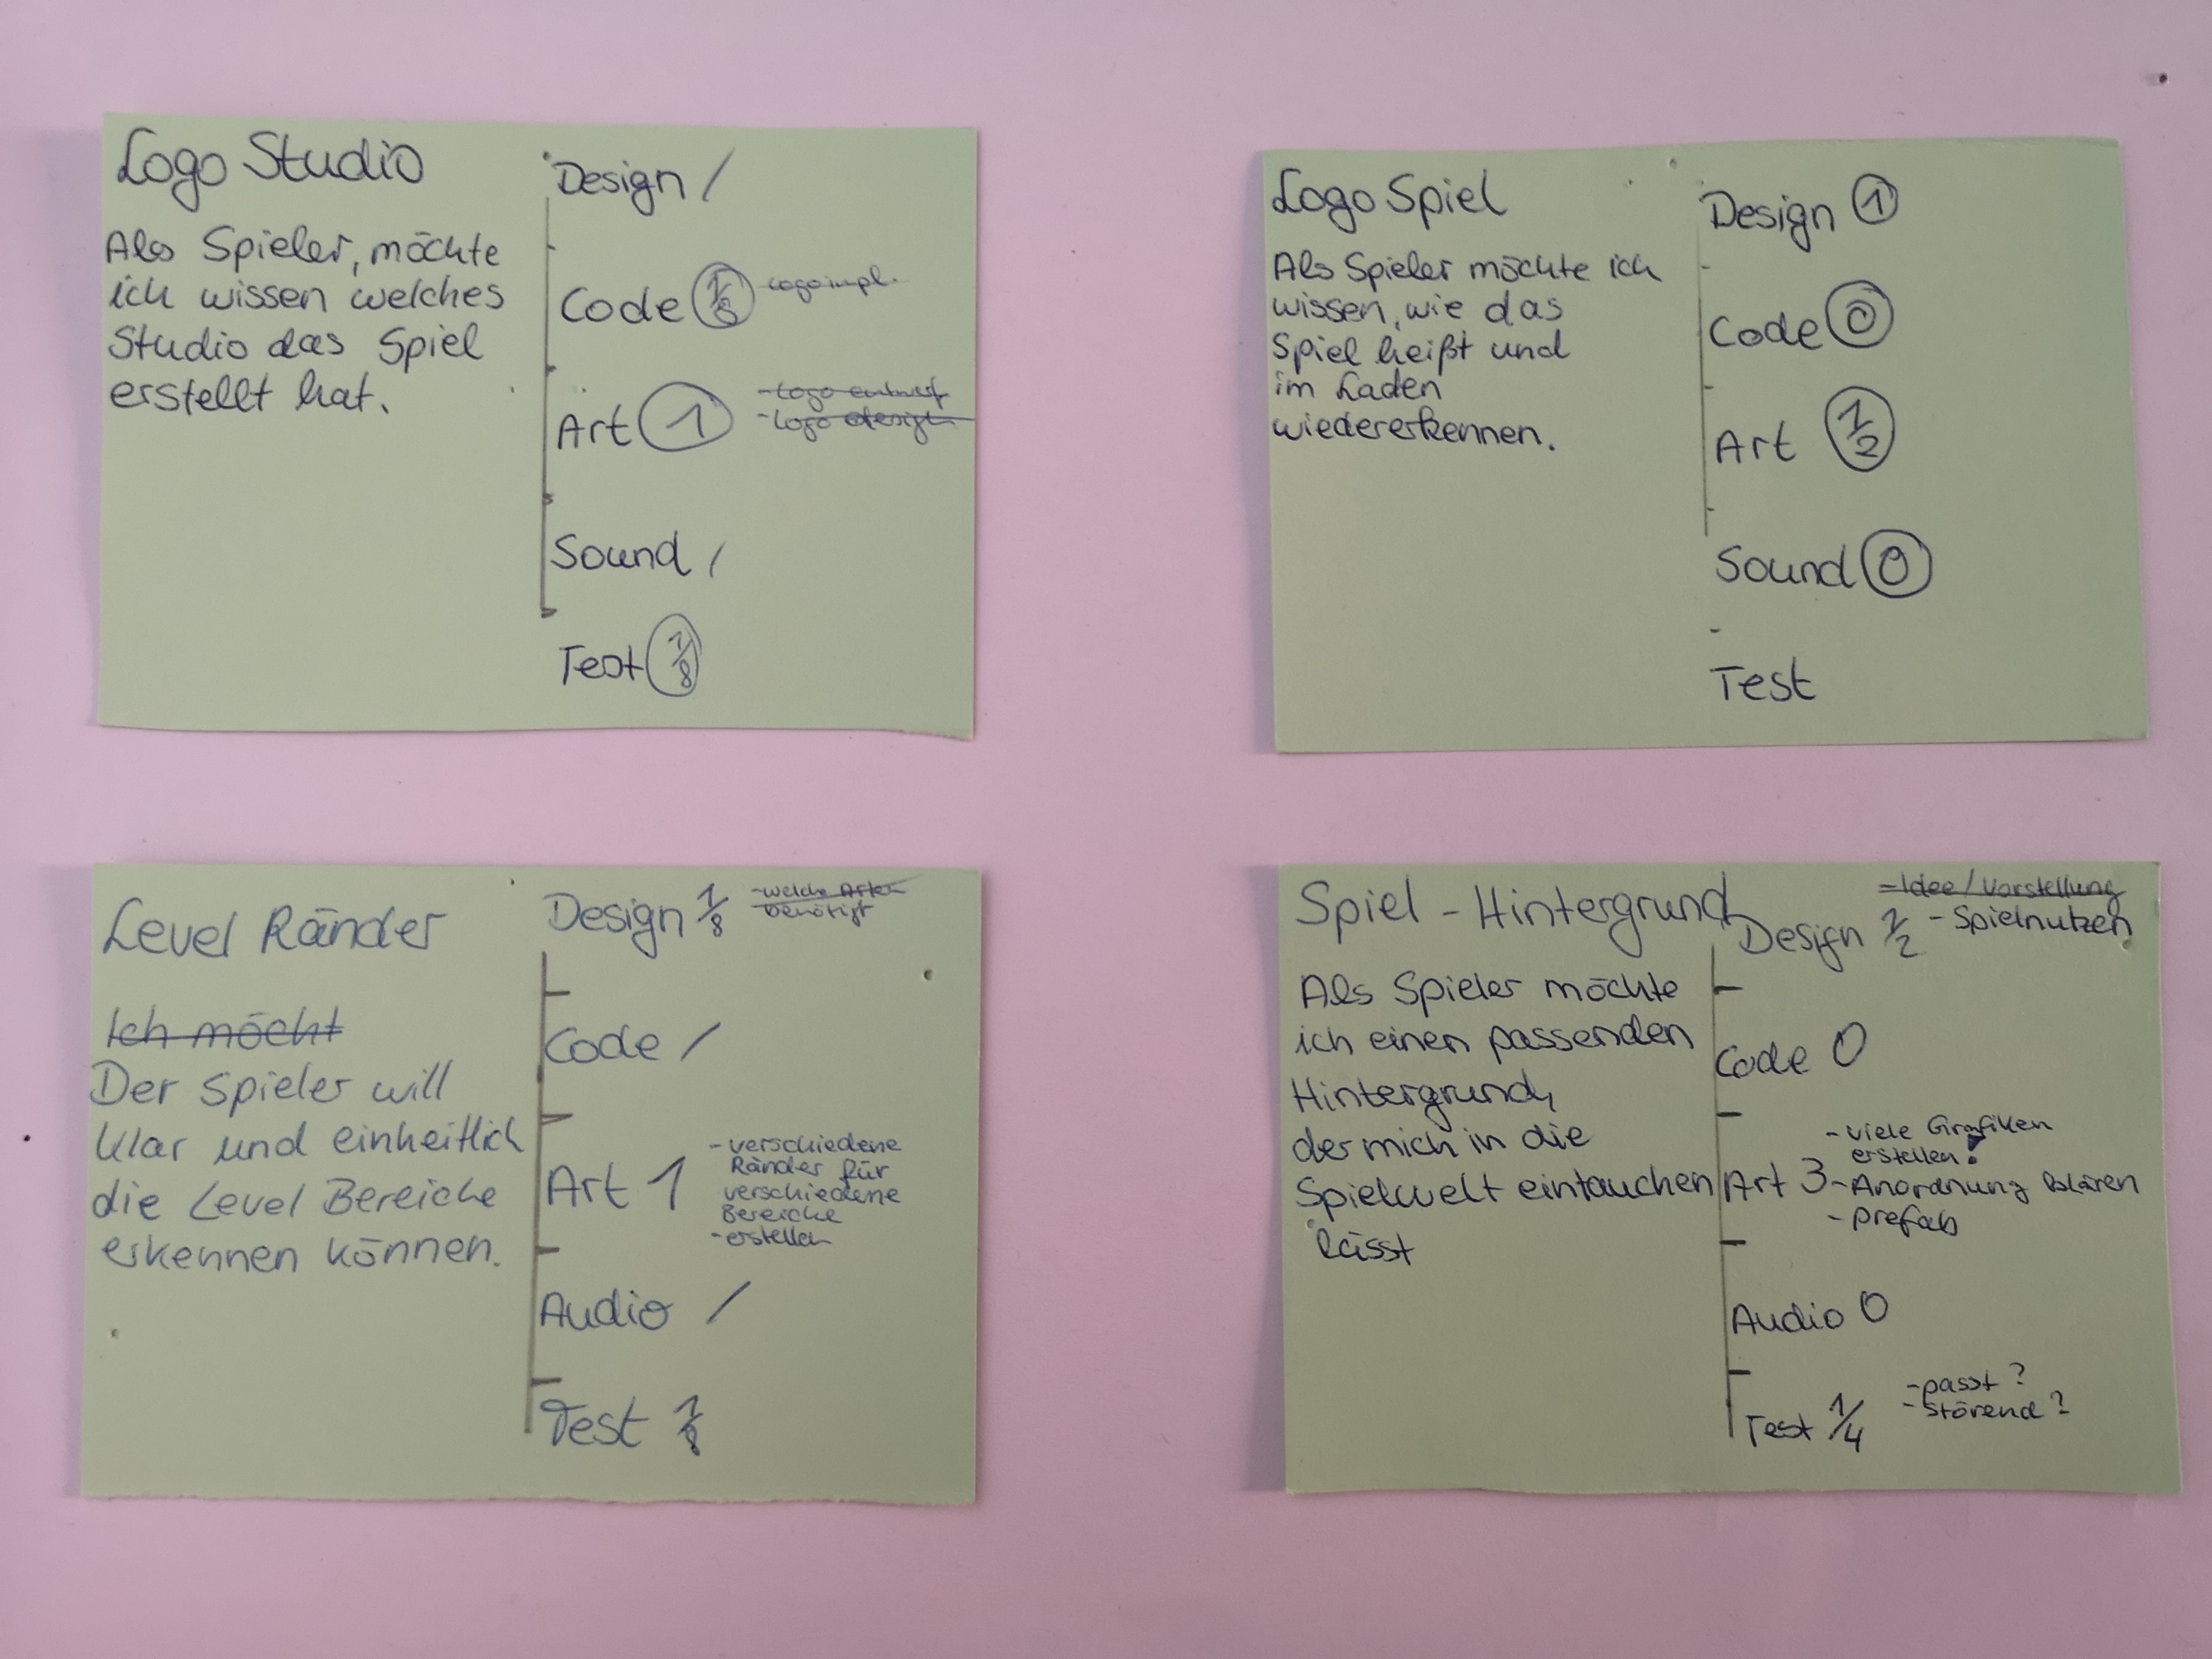 Logo Studio
Als Spieler, möchte
ich wissen welches
Studio das Spiel
erstellt hat.
Design /
Code 1/8 -Logoimpl.
Art 1 -Logo entwurf
-Logo design
Sound /
Test 1/8
Logo Spiel
Als Spieler möchte ich
wissen, wie das
Spiel heißt und
im Laden
wiedererkennen.
Design 1
Code 0
Art 1/2
Sound 0
Test
Level Ränder
Ich möcht
Der Spieler will
klar und einheitlich
die Level Bereiche
erkennen können.
Design 1/8 -welche Arten
benötigt
Code /
Art 1 -verschiedene
Ränder für
verschiedene
Bereiche
-erstellen
Audio /
Test 1/8
Spiel - Hintergrund
Als Spieler möchte
ich einen passenden
Hintergrund,
der mich in die
Spielwelt eintauchen
lässt
-Idee/Vorstellung
Design 1/2 -Spielnutzen
Code 0
-viele Grafiken
erstellen!
Art 3 -Anordnung klären
-prefab
Audio 0
Test 1/4 -passt?
-störend?